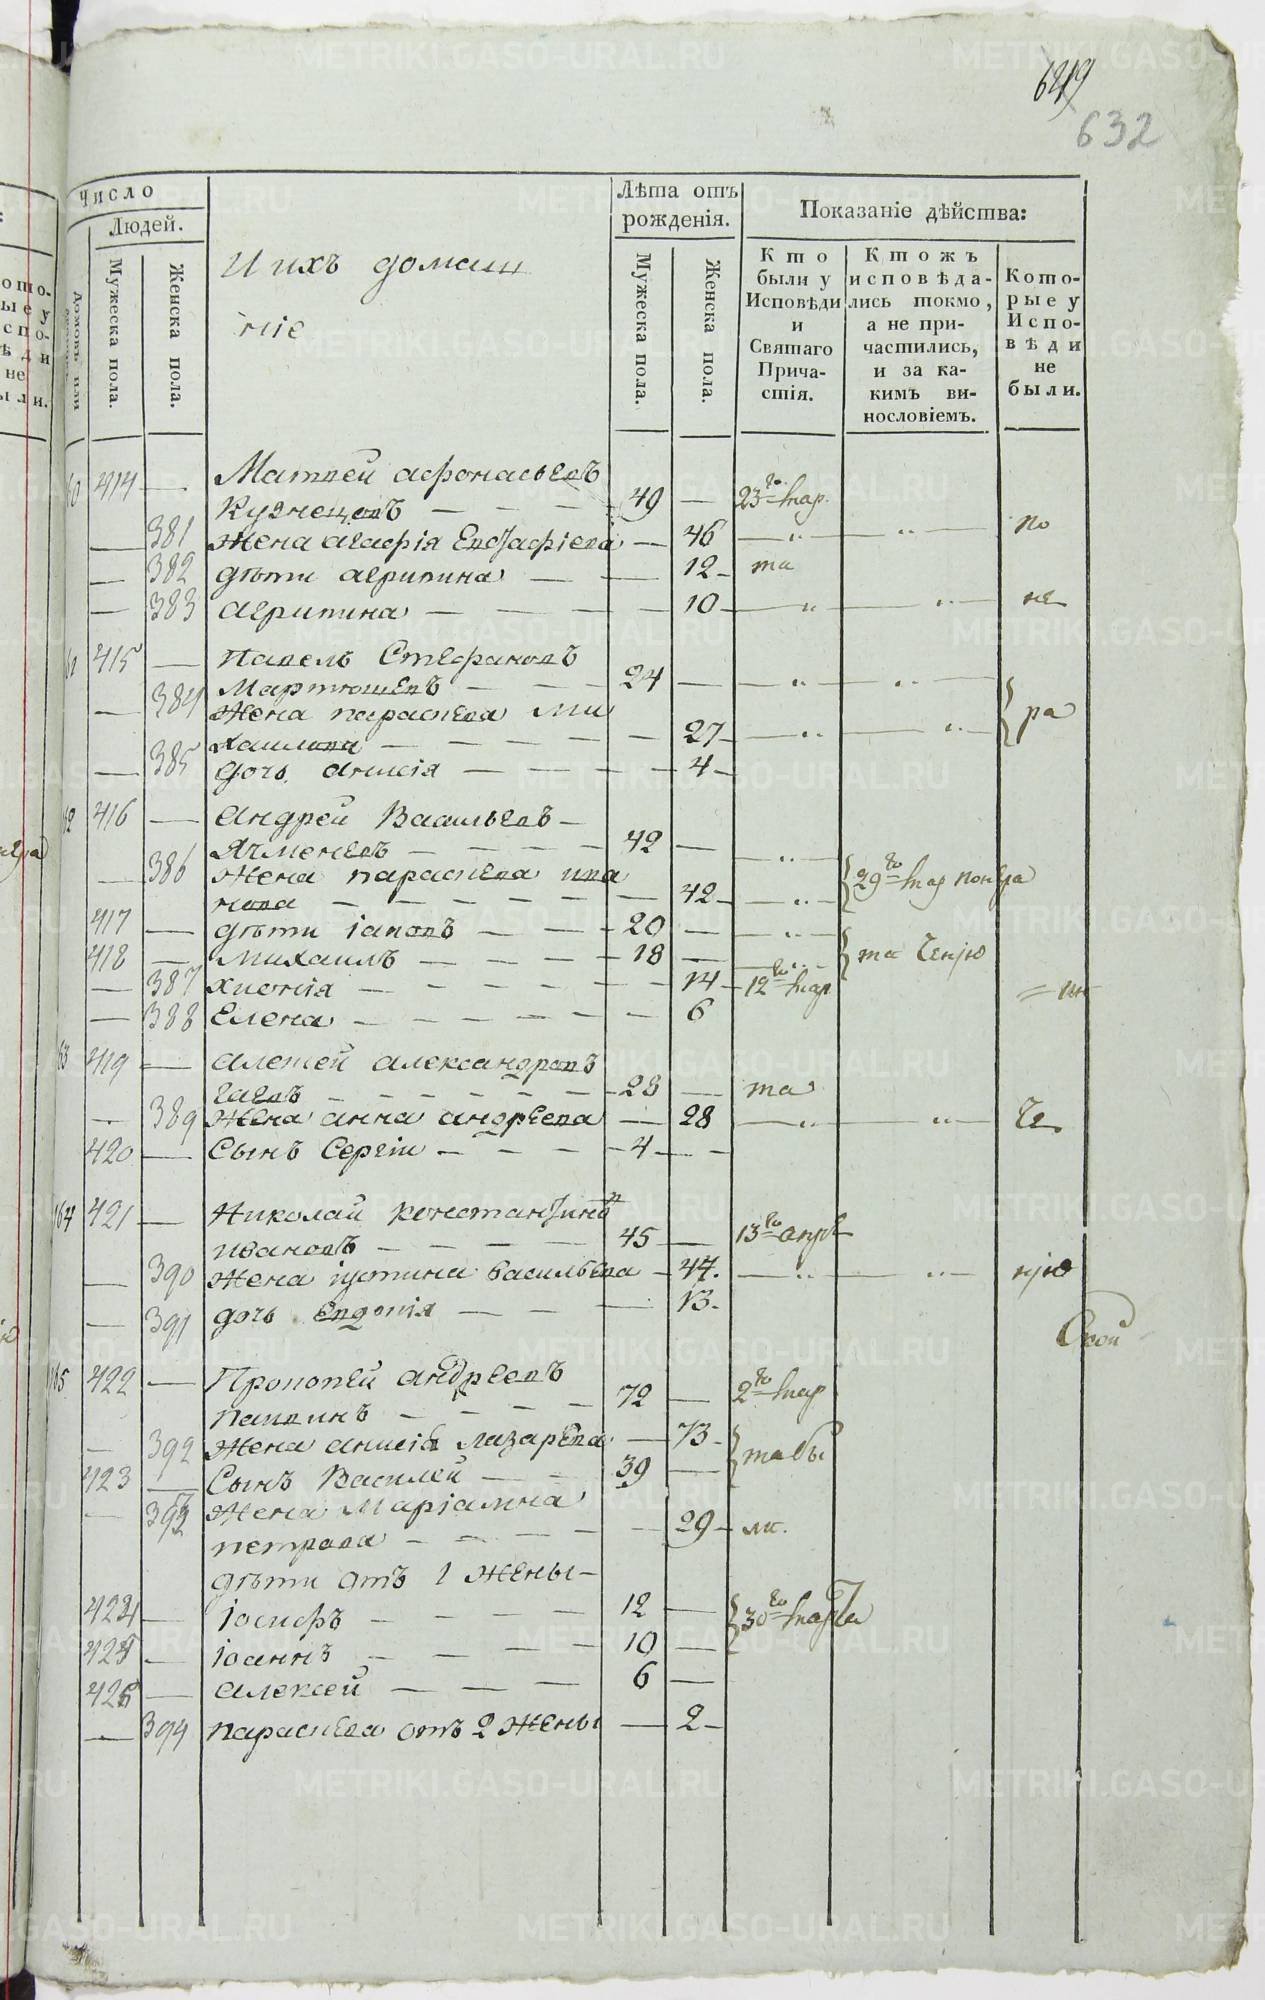 632
Число
Людей.
Мужеска пола.
Женска пола.
И ихъ домаш
ніе
Лѣта отъ
рожденія.
Мужеска пола.
Женска пола.
Показаніе дѣйства:
Кто
были у
Исповѣди
и
Святаго
Прича-
стія.
Ктожъ
исповѣда-
лись токмо,
а не при-
частились,
и за ка-
кимъ ви-
нословіемъ.
Кото-
рые у
Испо-
вѣди
не
были.
414 — Матвей Афонасьевъ
Кузнецовъ — — — 49 — 23го мар.
— 381 жена Агафія Евстафіева — 46 — „ — „ — по
— 382 дѣти Агрипина — — 12 — та
— 383 Агрипина — — — 10 — „ — „ — не
415 — Павелъ Стефановъ
Мартюшевъ — — — 24 — — „ — „ —
— 384 жена параскева Ми
хаилова — — — — 27 — „ — „ — ра
— 385 дочь Анисія — — — — 4 —
416 — Андрей Васильевъ —
Ячменевъ — — — — 42 — — „ —
— 386 жена параскева ива
нова — — — — — 42 — „ — 29го мар понера
417 — дѣти іаковъ — — — 20 — — „ —
418 — Михаилъ — — — — 18 — — „ — та ченію
— 387 Хионія — — — — — 14 — 12го мар
— 388 Елена — — — — — 6
419 — Алексей Александровъ
— — — — — 28 — та
— 389 жена Анна Андреева — 28 — „ — „ — че
420 — Сынъ Сергіи — — — — 4 — —
164 421 — Николай константиновъ
ивановъ — — — — 45 — 13го апрѣ
— 390 жена іустина васильева — 47. — „ — „ — нію
— 391 дочь Евдокія — — — 13.
Свой
165 422 — Прокопей Андреевъ
— — — — 72 — 2го мар
— 392 жена Анисія лазарева — 73 — та бы
423 — Сынъ Василей — — 39 —
— 393 жена Маріамна
петрова — — — — 29 — ли.
дѣти отъ 1 жены —
424 — Іосифъ — — — — 12 — 30го марта
425 — Іоаннъ — — — 10 —
426 — Алексей — — — 6 —
— 394 параскева отъ 2 жены — 2 —
METRIKI.GASO-URAL.RU